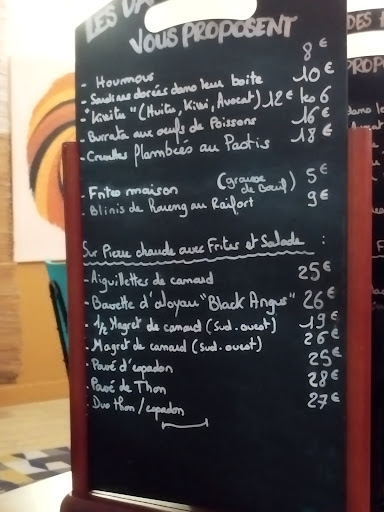 LES DA
VOUS PROPOSENT
- Houmous 8€
- Sardines dorées dans leur boite 10€
- "Kiwitre" (Huitre, Kiwi, Avocat) 12€ les 6
- Burrata aux oeufs de Poissons 16€
- Crevettes flambées au Pastis 18€
- Frites maison (graisse de Bœuf) 5€
- Blinis de Hareng au Raifort 9€
Sur Pierre chaude avec Frites et Salade :
- Aiguillettes de canard 25€
- Bavette d'aloyau "Black Angus" 26€
- 1/2 Magret de canard (Sud-ouest) 19€
- Magret de canard (Sud-ouest) 26€
- Pavé d'espadon 25€
- Pavé de Thon 28€
- Duo thon/espadon 27€
DES
PROPO